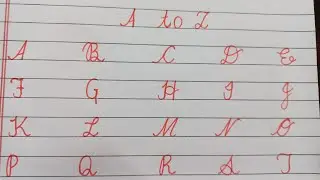 A to Z
A B C D E
F G H I J
K L M N O
P Q R S T